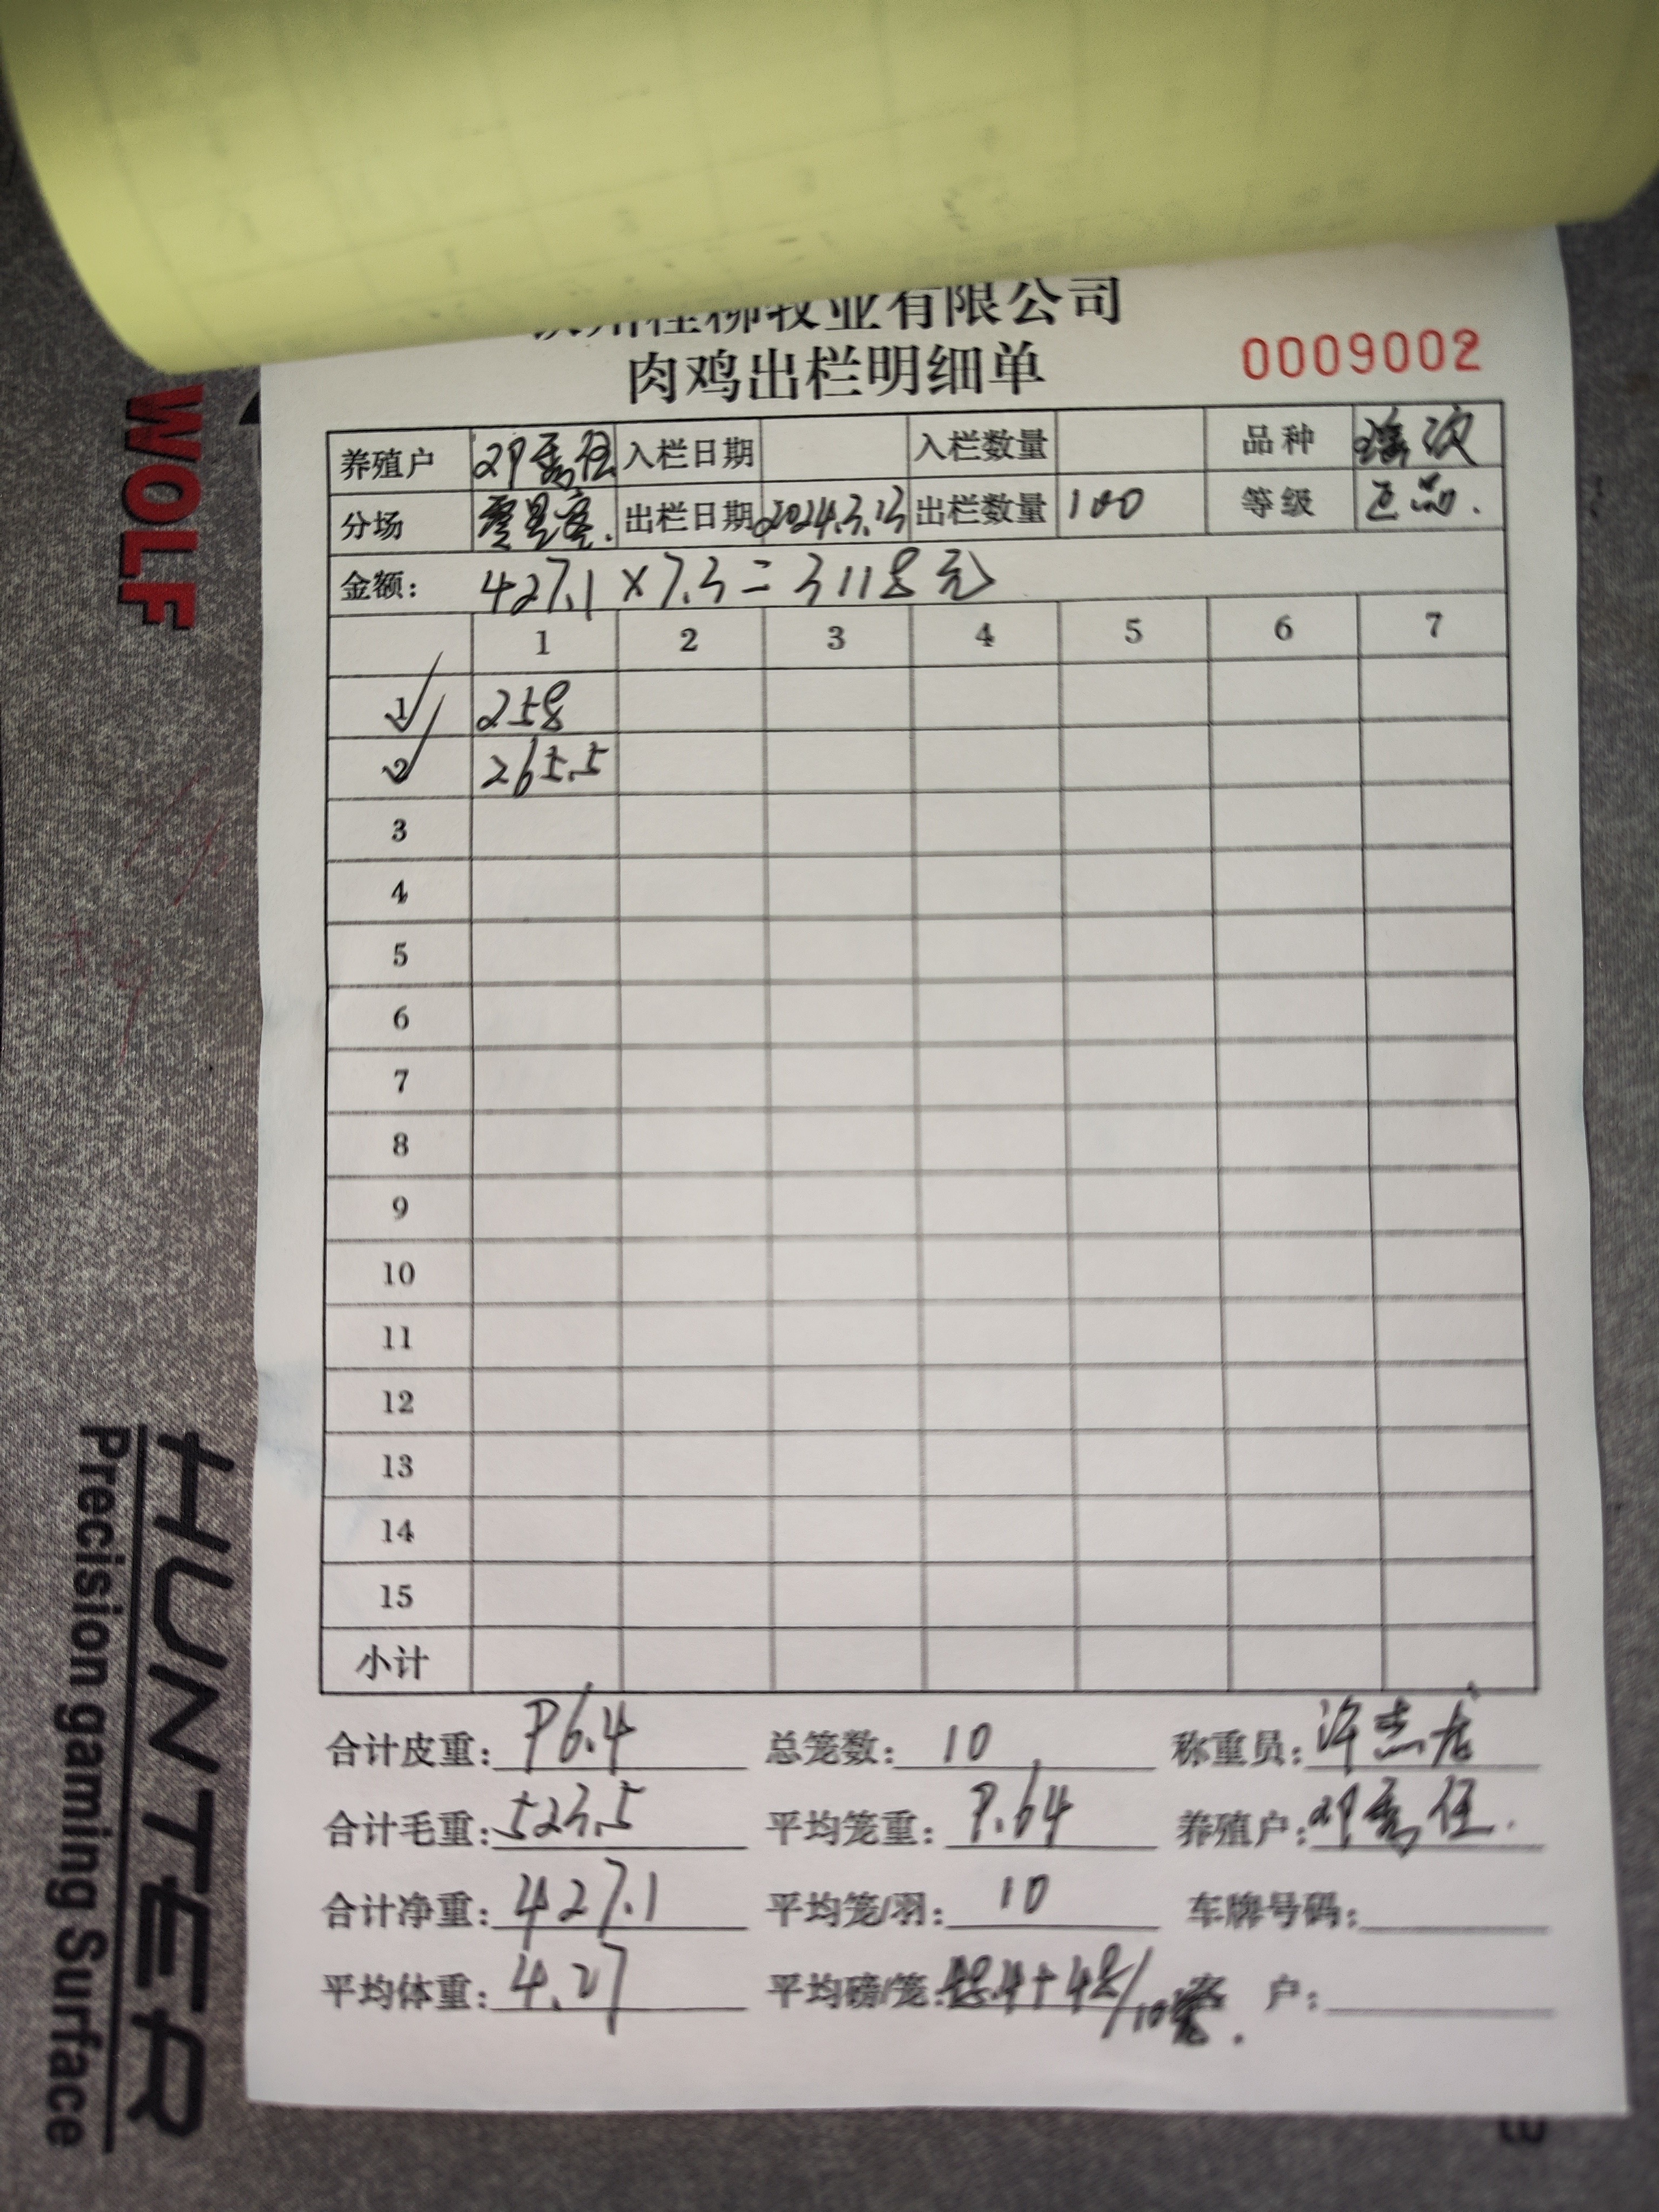 牧业有限公司
肉鸡出栏明细单 0009002
养殖户 邓秀伍 入栏日期 入栏数量 品种
分场 出栏日期 2024.3.13 出栏数量 100 等级 正品.
金额: 427.1×7.3=3118元
1 2 3 4 5 6 7
1 258
2 265.5
3
4
5
6
7
8
9
10
11
12
13
14
15
小计
合计皮重: 96.4 总笼数: 10 称重员: 许志龙
合计毛重: 523.5 平均笼重: 9.64 养殖户: 邓秀伍.
合计净重: 427.1 平均笼/羽: 10 车牌号码:
平均体重: 4.27 平均磅/笼: 48.4+48/10 客户:
WOLF
HUNTER
Precision gaming Surface